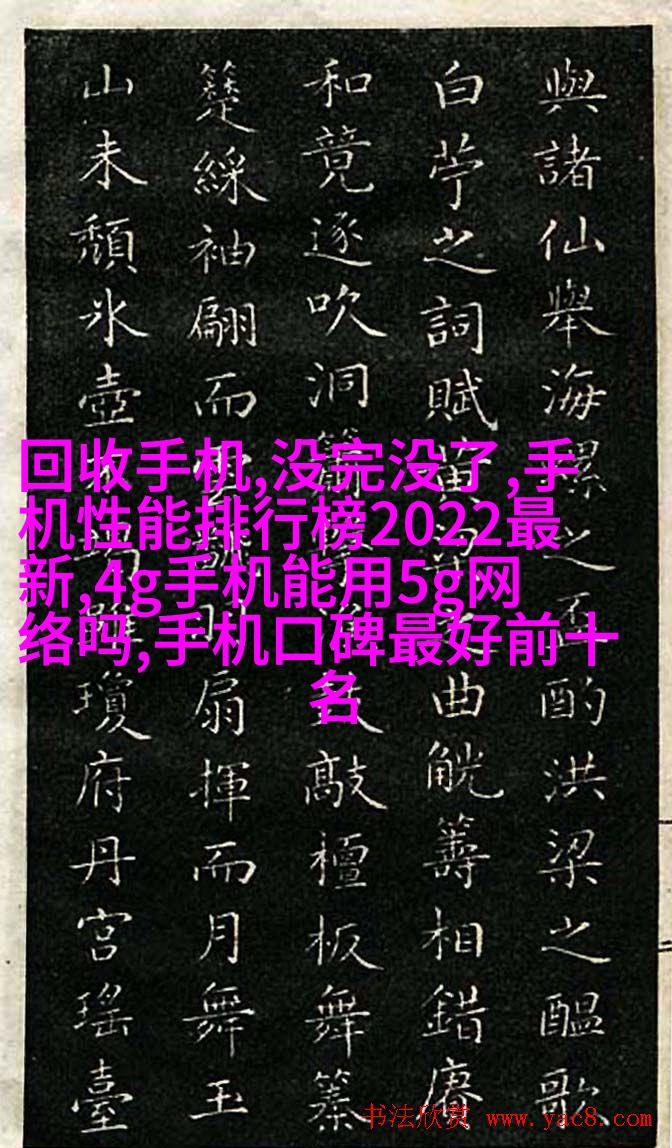 與諸仙舉海螺之酌洪梁之醖歌
白苧之詞賦曲觥籌相錯賡
和竟逐吹洞敲檀板舞
綵袖翩而扇揮而月舞玉
山未頹氷壺瓊府丹宮瑤臺
回收手机,没完没了,手
机性能排行榜2022最
新,4g手机能用5g网
络吗,手机口碑最好前十
名
书法欣赏 www.yac8.com